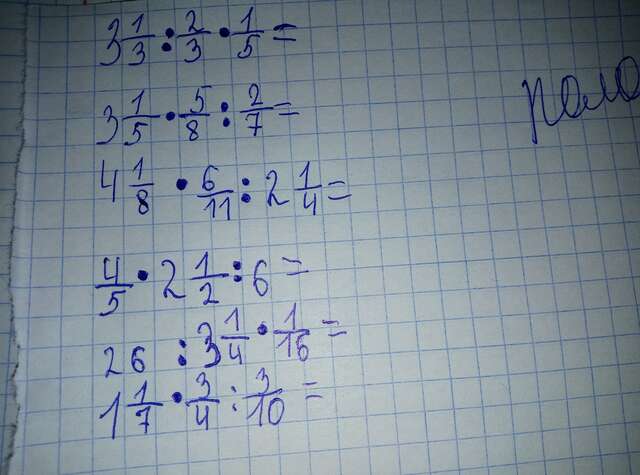 3 1/3 : 2/3 · 1/5 =
3 1/5 · 5/8 : 2/7 =
4 1/8 · 6/11 : 2 1/4 =
4/5 · 2 1/2 : 6 =
26 : 3 1/4 · 1/16 =
1 1/7 · 3/4 : 3/10 =